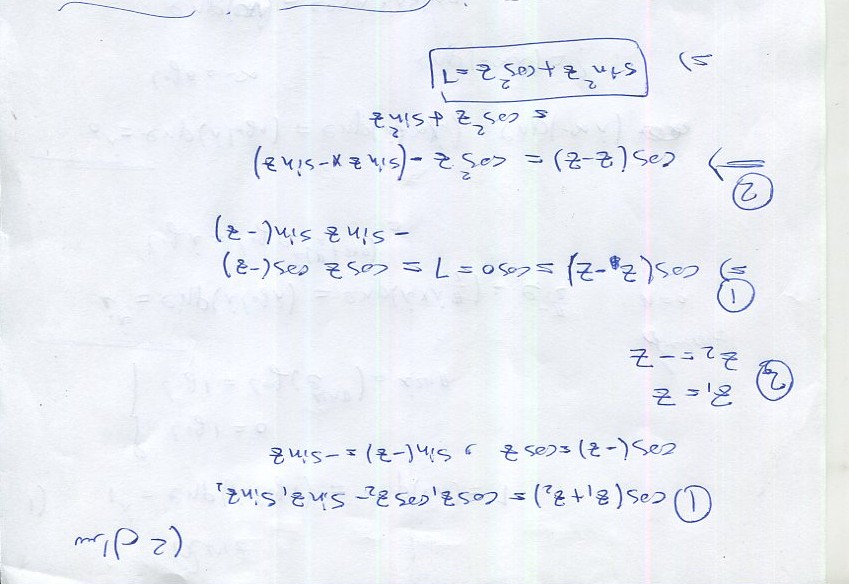 سوال 2)
① cos(z₁+z₂) = cosz₁ cosz₂ - sinz₁ sinz₂
cos(-z) = cosz , sin(-z) = -sinz
② z₁ = z
z₂ = -z
① ⇒ cos(z-z) = cos0 = 1 = cosz cos(-z)
- sinz sin(-z)
② ⇒ cos(z-z) = cos²z - (sinz x -sinz)
= cos²z + sin²z
⇒ sin²z + cos²z = 1